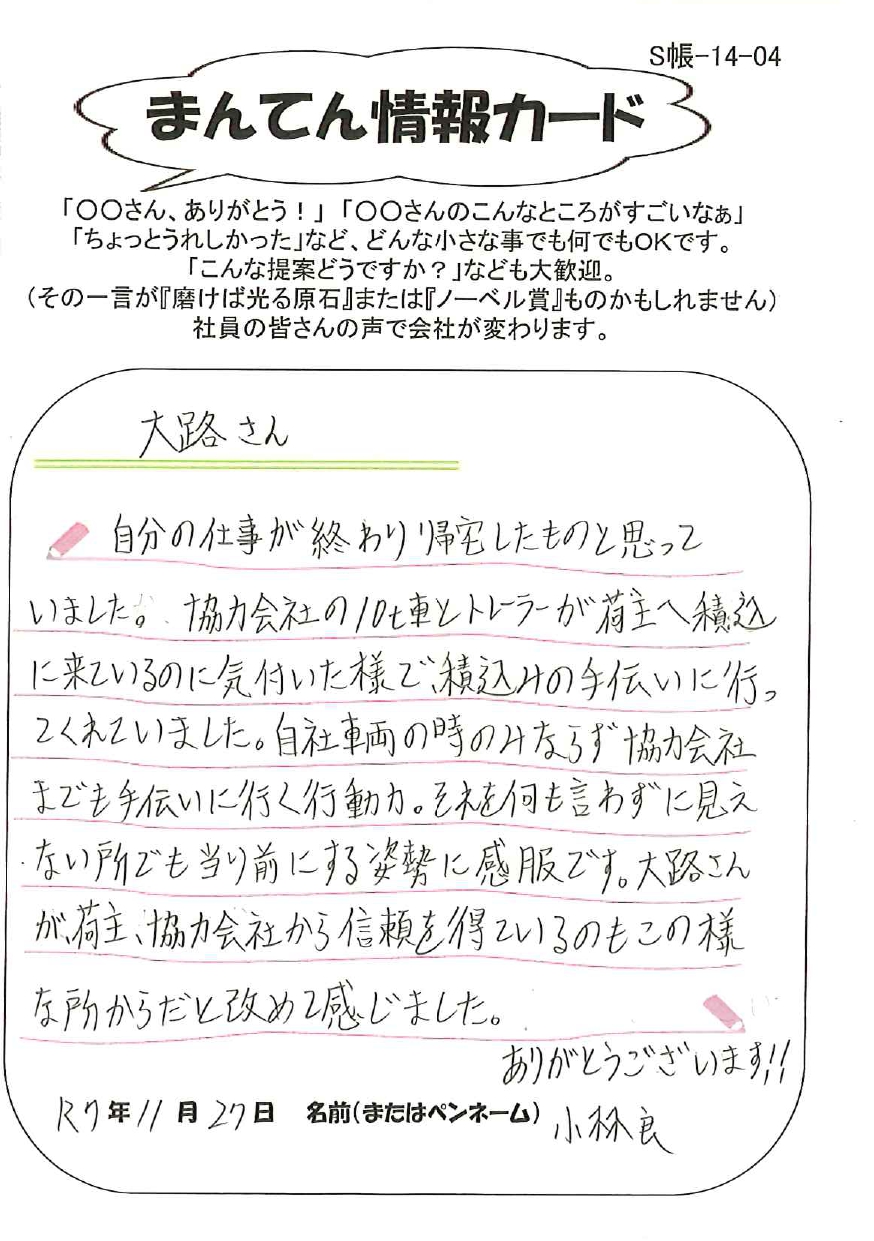 S帳-14-04
まんてん情報カード
「〇〇さん、ありがとう！」「〇〇さんのこんなところがすごいなぁ」
「ちょっとうれしかった」など、どんな小さな事でも何でもOKです。
「こんな提案どうですか？」なども大歓迎。
（その一言が『磨けば光る原石』または『ノーベル賞』ものかもしれません）
社員の皆さんの声で会社が変わります。
大路さん
自分の仕事が終わり帰宅したものと思って
いました。協力会社の10t車とトレーラーが荷主へ積込
に来ているのに気付いた様で、積込みの手伝いに行っ
てくれていました。自社車両の時のみならず協力会社
までも手伝いに行く行動力。それを何も言わずに見え
ない所でも当り前にする姿勢に感服です。大路さん
が、荷主、協力会社から信頼を得ているのもこの様
な所からだと改めて感じました。
ありがとうございます!!
R7年11月27日 名前（またはペンネーム） 小林良